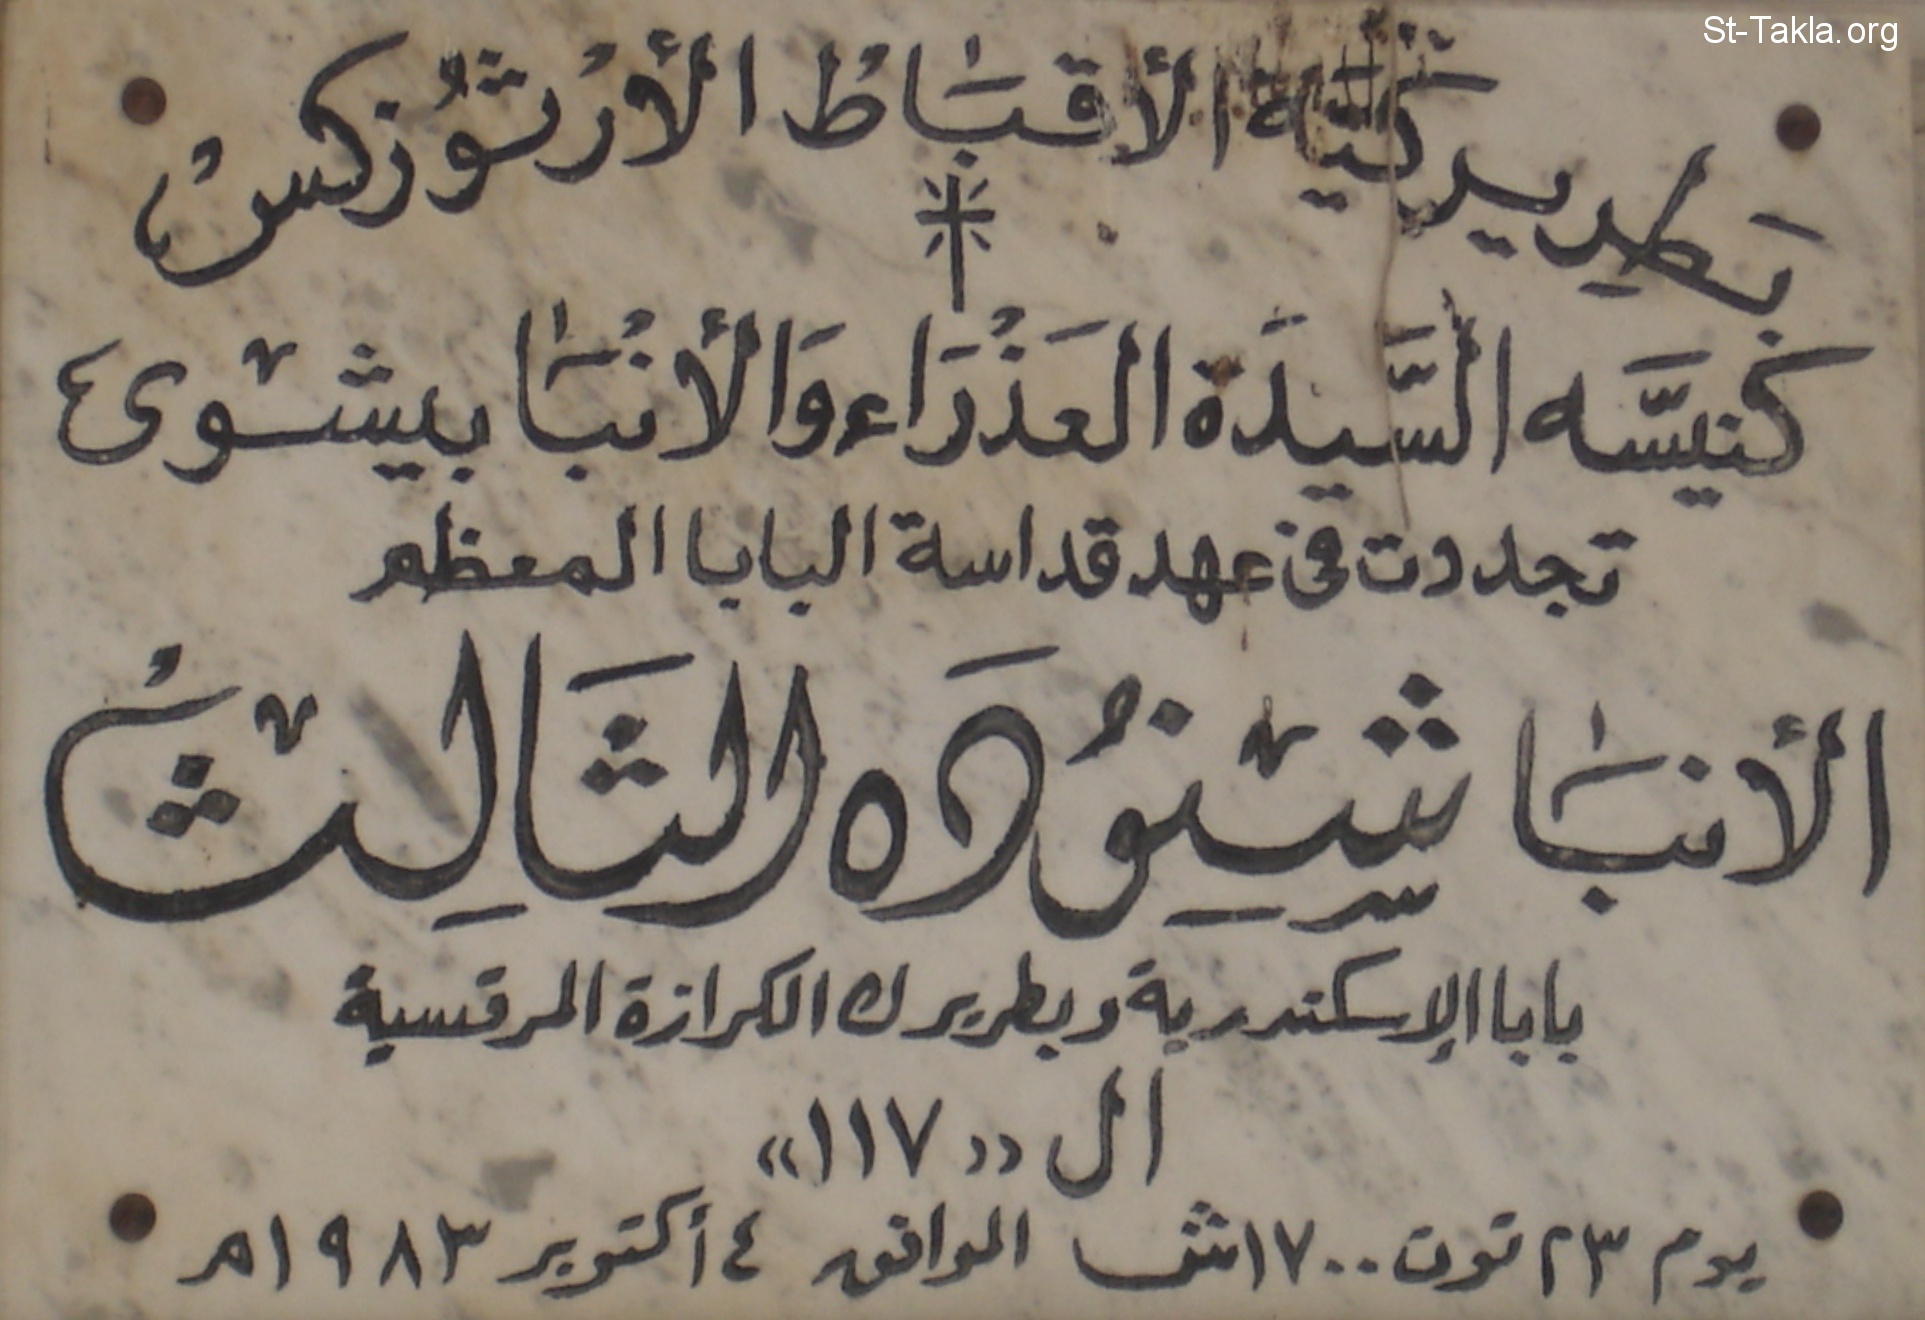 St-Takla.org
بَطْرِيركيَّة الأقبَاط الأرْثوُذكسْ
كَنيسَّه السَّيدَة العَذْرَاء وَالأنْبَا بيشوى
تجددت فى عهد قداسة البابا المعظم
الأنبَا شِنوُدَه الثَالِثْ
بابا الإسكندرية وبطريرك الكرازة المرقسية
ال «١١٧»
يوم ٢٣ توت ١٧٠٠ش الموافق ٤ أكتوبر ١٩٨٣م